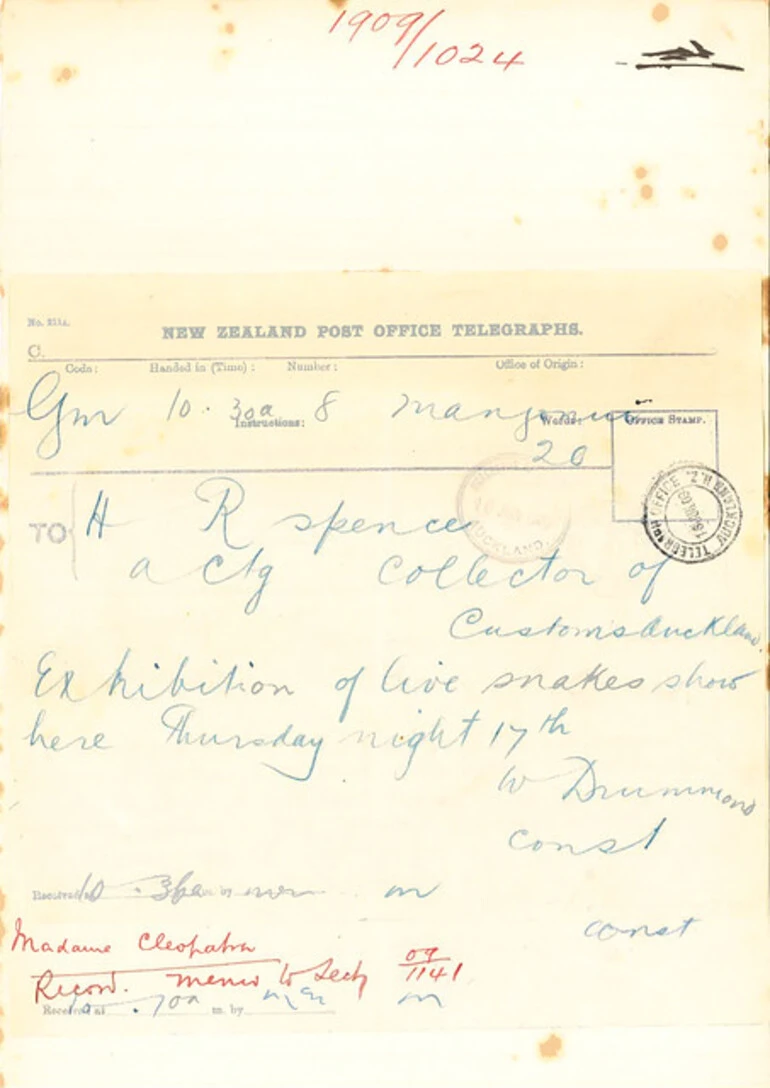 1909/1024
No. 211A.
NEW ZEALAND POST OFFICE TELEGRAPHS.
C.
Code: Handed in (Time): Number: Office of Origin:
Gm 10.30a 8 Mangonui
Instructions: Words: OFFICE STAMP.
20
TELEGRAPH OFFICE AUCKLAND N.Z.
AUCKLAND
TO H R Spence
actg Collector of
Customs Auckland.
Exhibition of live snakes show
here Thursday night 17th
W Drummond
const
Received
const
Madame Cleopatra
Record. memo to Secty 09/1141
Received at m. by